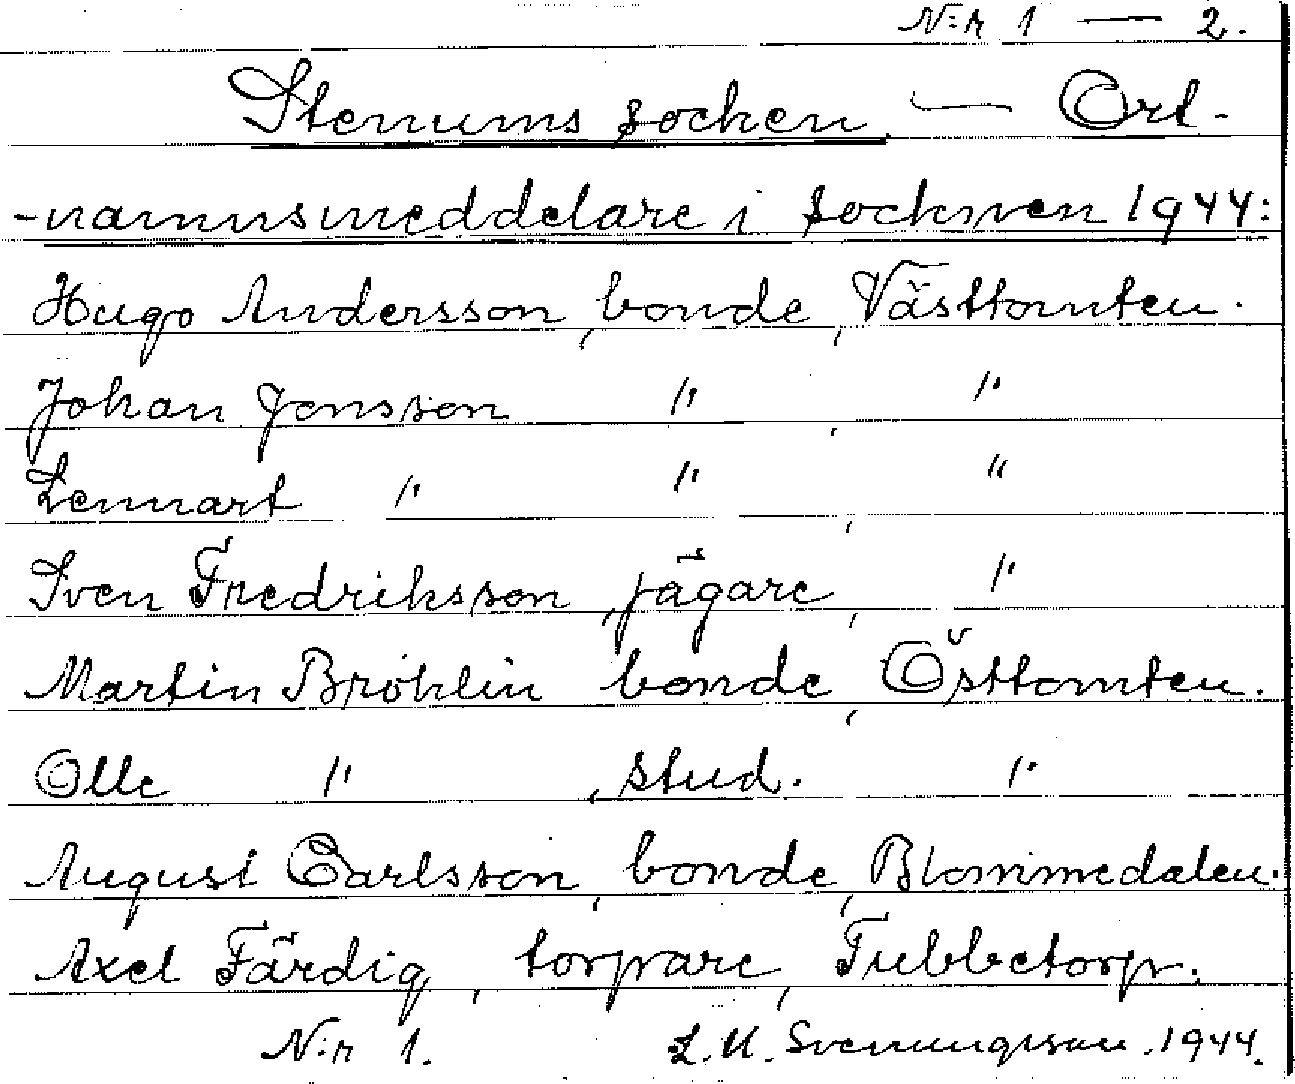 N:r 1 — 2.
Stenums socken — Ort-
-namnsmeddelare i socknen 1944:
Hugo Andersson, bonde, Västtomten.
Johan Jonsson " , "
Lennart " " , "
Sven Fredriksson, jägare, "
Martin Bröhlin bonde, Östtomten.
Olle " , stud. "
August Carlsson, bonde, Blommedalen.
Axel Färdig, torpare, Tubbetorp.
N:r 1. L. U. Svenungsson. 1944.